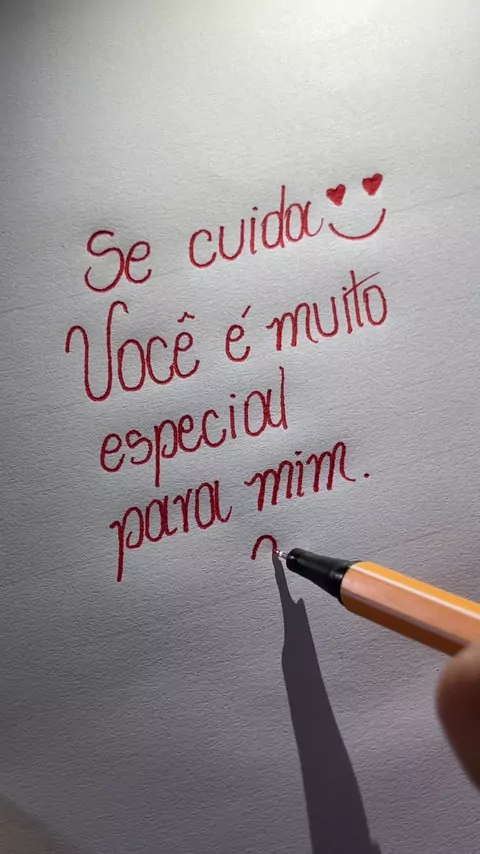 Se cuida
Você é muito
especial
para mim.